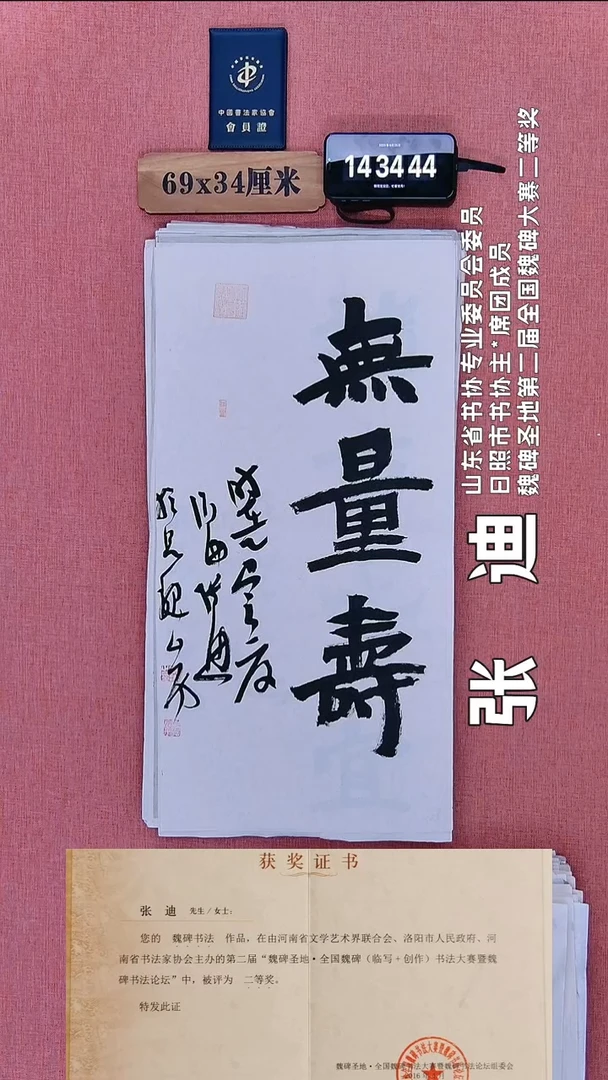 中國書法家協會
會員證
69x34厘米
14 34 44
無量壽
山东省书协专业委员会委员
日照市书协主*席团成员
魏碑圣地第二届全国魏碑大赛二等奖
张 迪
获奖证书
张 迪 先生/女士:
您的 魏碑书法 作品,在由河南省文学艺术界联合会、洛阳市人民政府、河
南省书法家协会主办的第二届“魏碑圣地·全国魏碑(临写+创作)书法大赛暨魏
碑书法论坛”中,被评为 二等奖。
特发此证
魏碑圣地·全国魏碑书法大赛暨魏碑书法论坛组委会